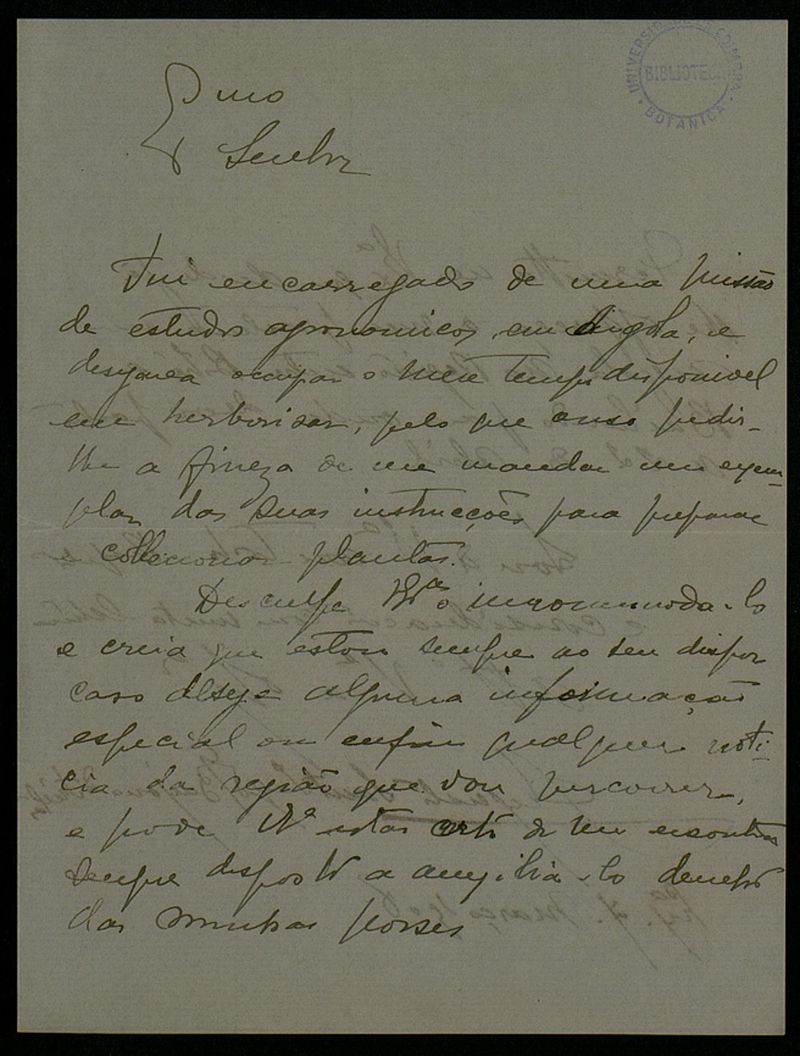 UNIVERSIDADE DE COIMBRA
BIBLIOTECA
BOTANICA
Exmo
Senhor
Fui encarregado de uma Missão
de estudos agronomicos em Angola, e
desejava occupar o meu tempo disponivel
em herborisar, pelo que ouso pedir-
lhe a fineza de me mandar um exem-
plar das suas instrucções para preparar
e colleccionar plantas.
Desculpe V. Exª o incommoda-lo
e creia que estou sempre ao seu dispor
caso deseje alguma informação
especial ou enfim qualquer noti-
cia da região que vou percorrer,
e pode V. Exª estar certo de me encontrar
sempre disposto a auxilia-lo dentro
das minhas posses